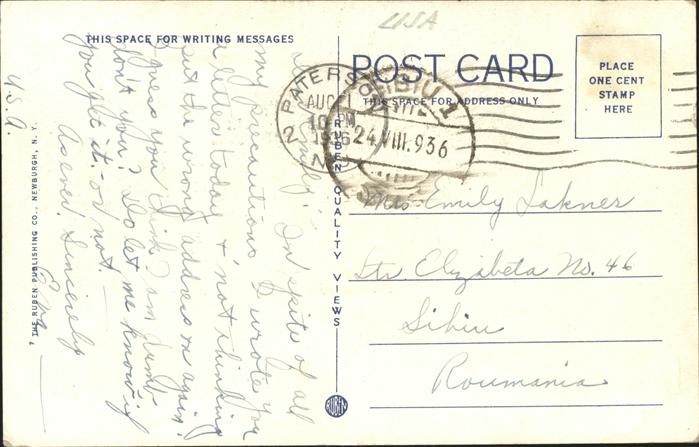 USA
THIS SPACE FOR WRITING MESSAGES
POST CARD
THIS SPACE FOR ADDRESS ONLY
PLACE
ONE CENT
STAMP
HERE
PATERSON
AUG
10 PM
1936
2 N.J.
SIBIU 1
24.VIII.936
Dear Emily: In spite of all
my precautions I wrote you
a letter today & not thinking
put the wrong address on again.
I guess you think I'm dumb
don't you? Do let me know if
you get it or not.
As ever, Sincerely
U.S.A.
Mrs. Emily Lakner
Str. Elizabeta No. 46
Sibiu
Roumania
RUBEN QUALITY VIEWS
RUBEN
THE RUBEN PUBLISHING CO., NEWBURGH, N. Y.